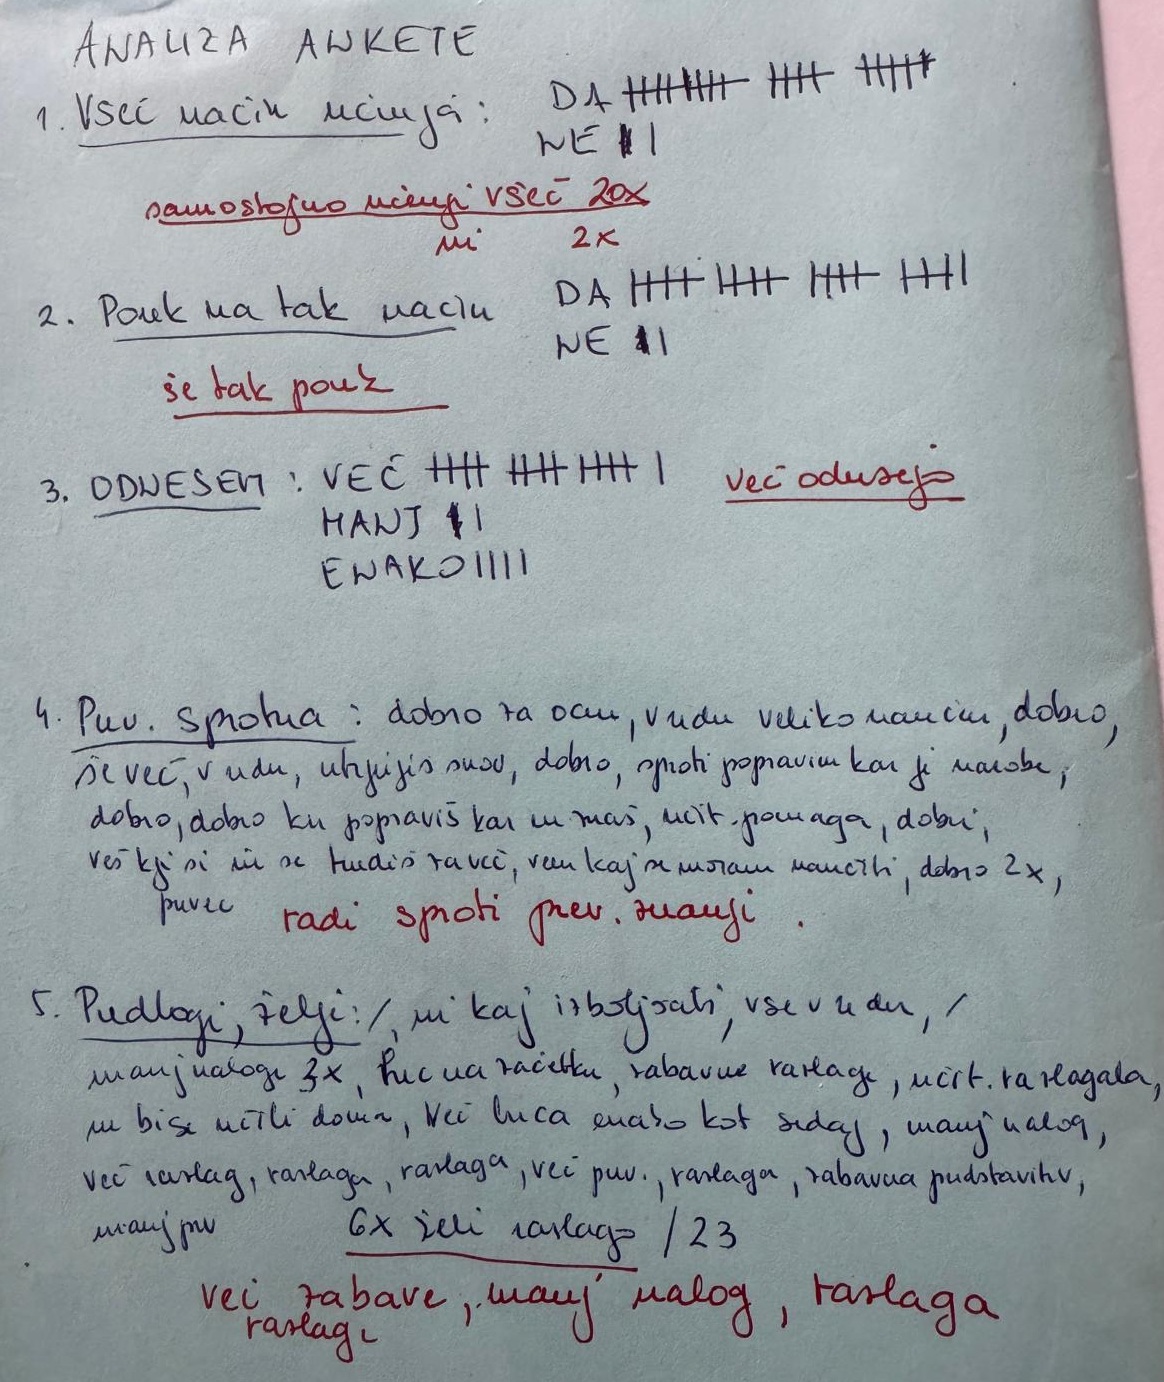 ANALIZA ANKETE
1. Všeč način učenja: DA
NE
samostojno učenje všeč 20x
ni 2x
2. Pouk na tak način DA
NE
še tak pouk
3. ODNESEM: VEČ
MANJ
ENAKO
več odnesejo
4. Prev. sprotna: dobro za oceno, v redu veliko naučim, dobro,
še več, v redu, utrjuješ snov, dobro, sproti popravim kar je narobe,
dobro, dobro ker popraviš kar ne znaš, učit. pomaga, dobri,
veš kje si in se trudiš za več, vem kaj se moram naučiti, dobro 2x,
preveč
radi sproti prev. znanje.
5. Predlogi, želje: /, ni kaj izboljšati, vse v redu, /
manj naloge 3x, hec na začetku, zabavne razlage, učit. razlagala,
ne bi se učili doma, več enako kot sedaj, manj nalog,
več razlag, razlaga, razlaga, več prev., razlaga, zabavna predstavitev,
manj prev
6x želi razlago / 23
več zabave, manj nalog, razlaga
razlage